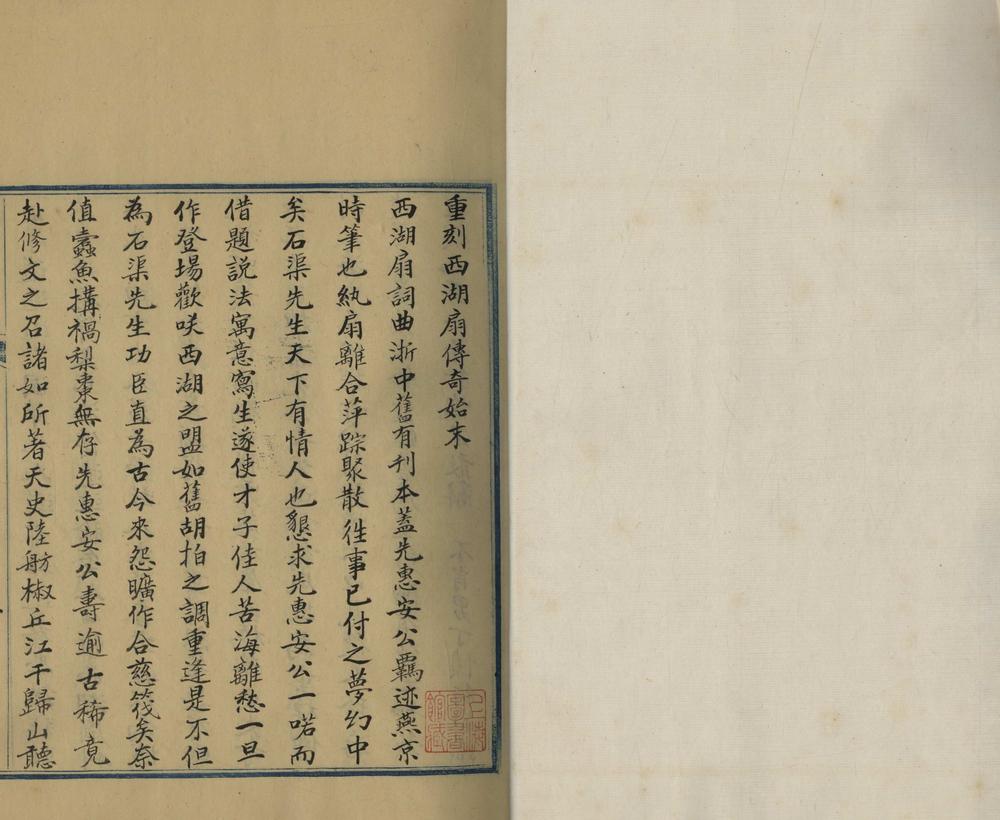 重刻西湖扇傳奇始末
西湖扇詞曲浙中舊有刋本蓋先惠安公羈迹燕京
時筆也紈扇離合萍踪聚散徃事已付之夢幻中
矣石渠先生天下有情人也懇求先惠安公一喏而
借題説法寓意寫生遂使才子佳人苦海離愁一旦
作登場歡咲西湖之盟如舊胡拍之調重逢是不但
為石渠先生功臣直為古今來怨曠作合慈筏矣奈
值蠹魚搆禍梨棗無存先惠安公壽逾古稀竟
赴修文之召諸如所著天史陸舫椒丘江干歸山聽
上海圖書館藏